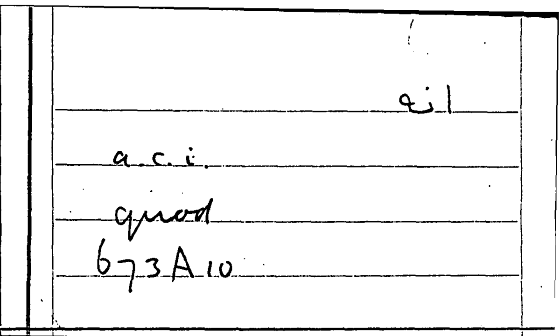 ail
a.c.i.
quod
673A10